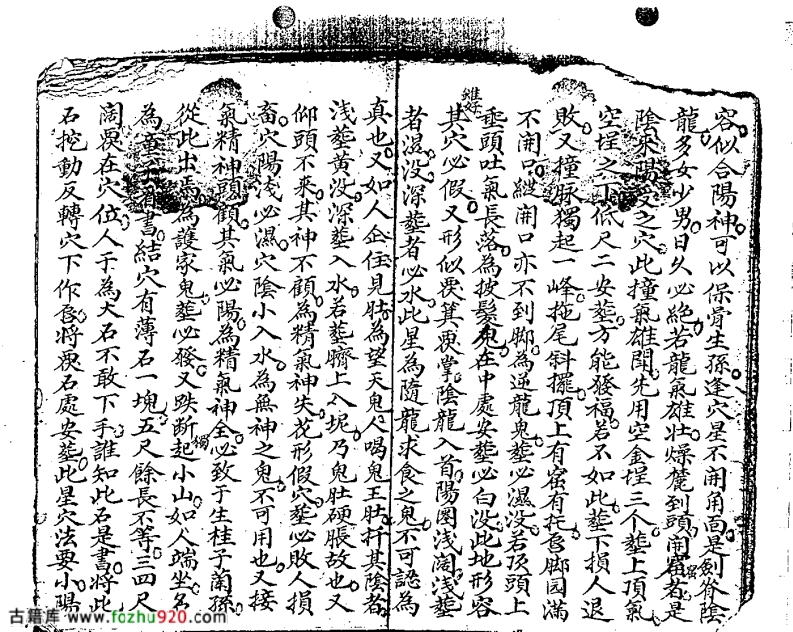 容似合陽神可以保骨生孫逢穴星不開角面是劍脊陰
龍多女少男日久必絕若龍氣雄壯燥麓到頭開窩者是
陰來陽受之穴此撞氣雄聞先用空金埕三个塟上頂氣
空埕之下低尺二安塟方能發福若不如此塟下損人退
敗又撞脉獨起一峰拖尾斜擺頂上有窩有托唇脚园滿
不開口縱開口亦不到脚為逆龍鬼塟必濕没若頂頭上
垂頭吐氣長落為披鬚鬼在中處安塟必白没此地形容
其穴必假又形似畏箕畏掌陰龍入首陽圈浅闊浅塟
者濕没深塟者必水此星為隨龍求食之鬼不可誌為
真也又如人企住見肚為望天鬼人喝鬼王肚扞其陰者
浅塟黄没深塟入水若塟臍上入坭乃鬼肚硬脹故也又
仰頭不来其神不顧為精氣神失花形假穴塟必敗人損
畜穴陽浅必濕穴陰小入水為無神之鬼不可用也又接
氣精神頭顧其氣必陽為精氣神全必致于生桂子蘭孫
從此出為護家鬼塟必發又跌断起小山如人端坐名
為童子看書結穴有薄石一塊五尺餘長不等三四尺
闊畏在穴位人于為大石不敢下手誰知此石是書將此
石挖動反轉穴下作𠮷將畏石處安塟此星穴法要小陽
古籍库 www.fozhu920.com